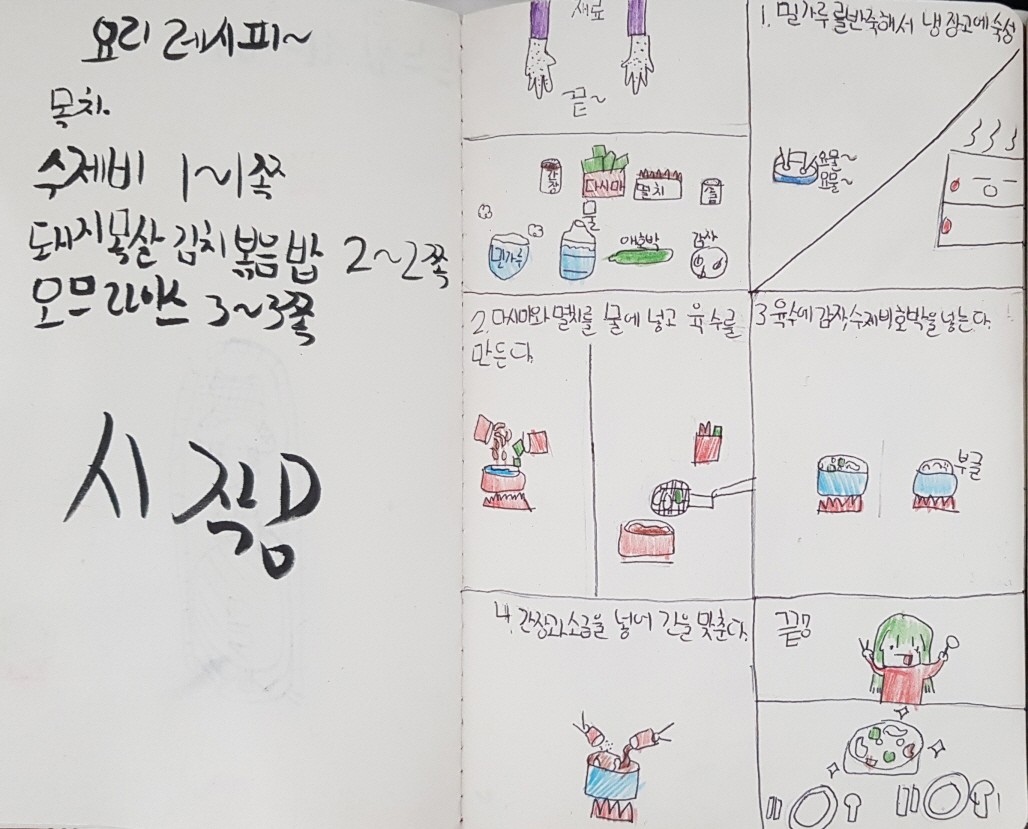 요리 레시피~
목차.
수제비 1~1쪽
돼지목살 김치볶음밥 2~2쪽
오므라이스 3~3쪽
시작
재료
끝~
간장
다시마
멸치
소금
물
밀가루
애호박
감자
1. 밀가루를 반죽해서 냉장고에 숙성
요물~
요물~
2. 다시마와 멸치를 물에 넣고 육수를
만든다.
3. 육수에 감자, 수제비 호박을 넣는다.
부글
4. 간장과 소금을 넣어 간을 맞춘다.
끝